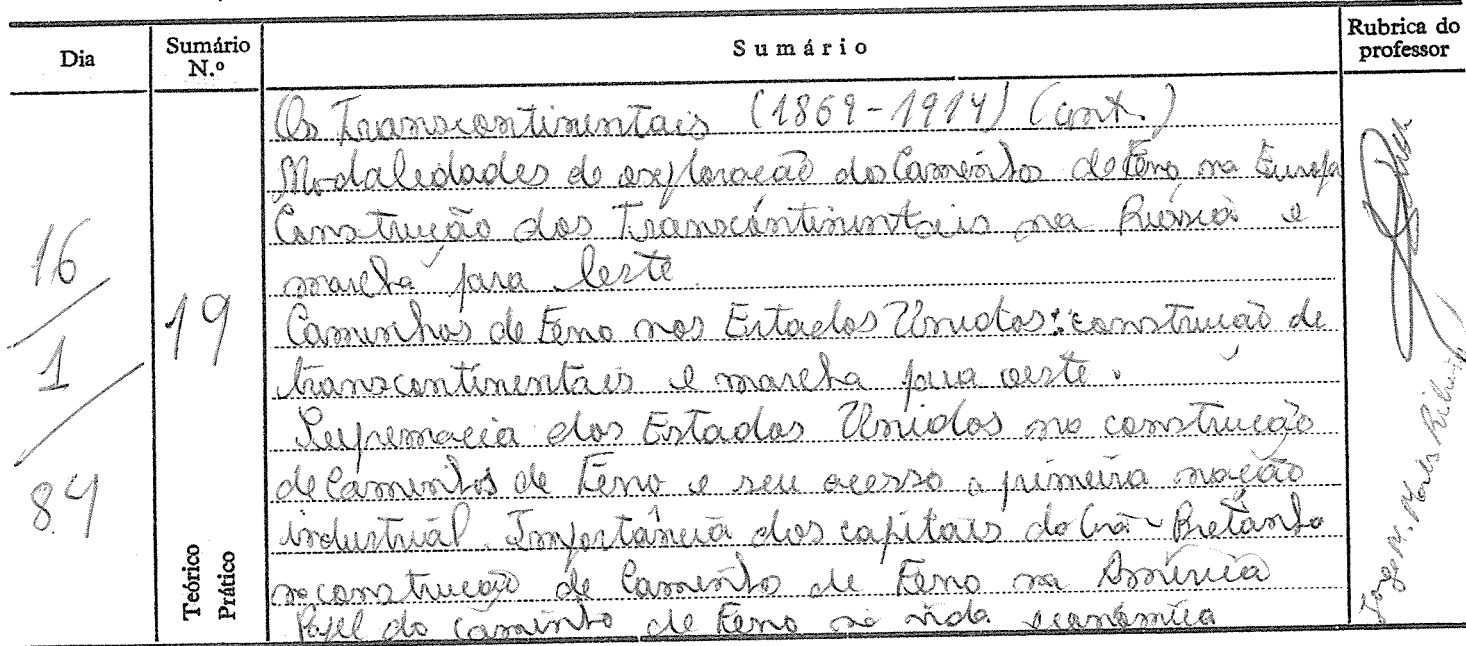 Dia
Sumário N.º
Sumário
Rubrica do professor
Os Transcontinentais (1869-1914) (cont.)
Modalidades de exploração dos Caminhos de Ferro na Europa
Construção dos Transcontinentais na Rússia e
marcha para leste.
Caminhos de Ferro nos Estados Unidos: construção de
transcontinentais e marcha para oeste.
Supremacia dos Estados Unidos na construção
de Caminhos de Ferro e seu acesso a primeira nação
industrial. Importância dos capitais da Grã-Bretanha
na construção de Caminho de Ferro na América
Papel do caminho de Ferro na vida económica
16/1/84
19
Teórico
Prático
Jorge M. Ribeiro